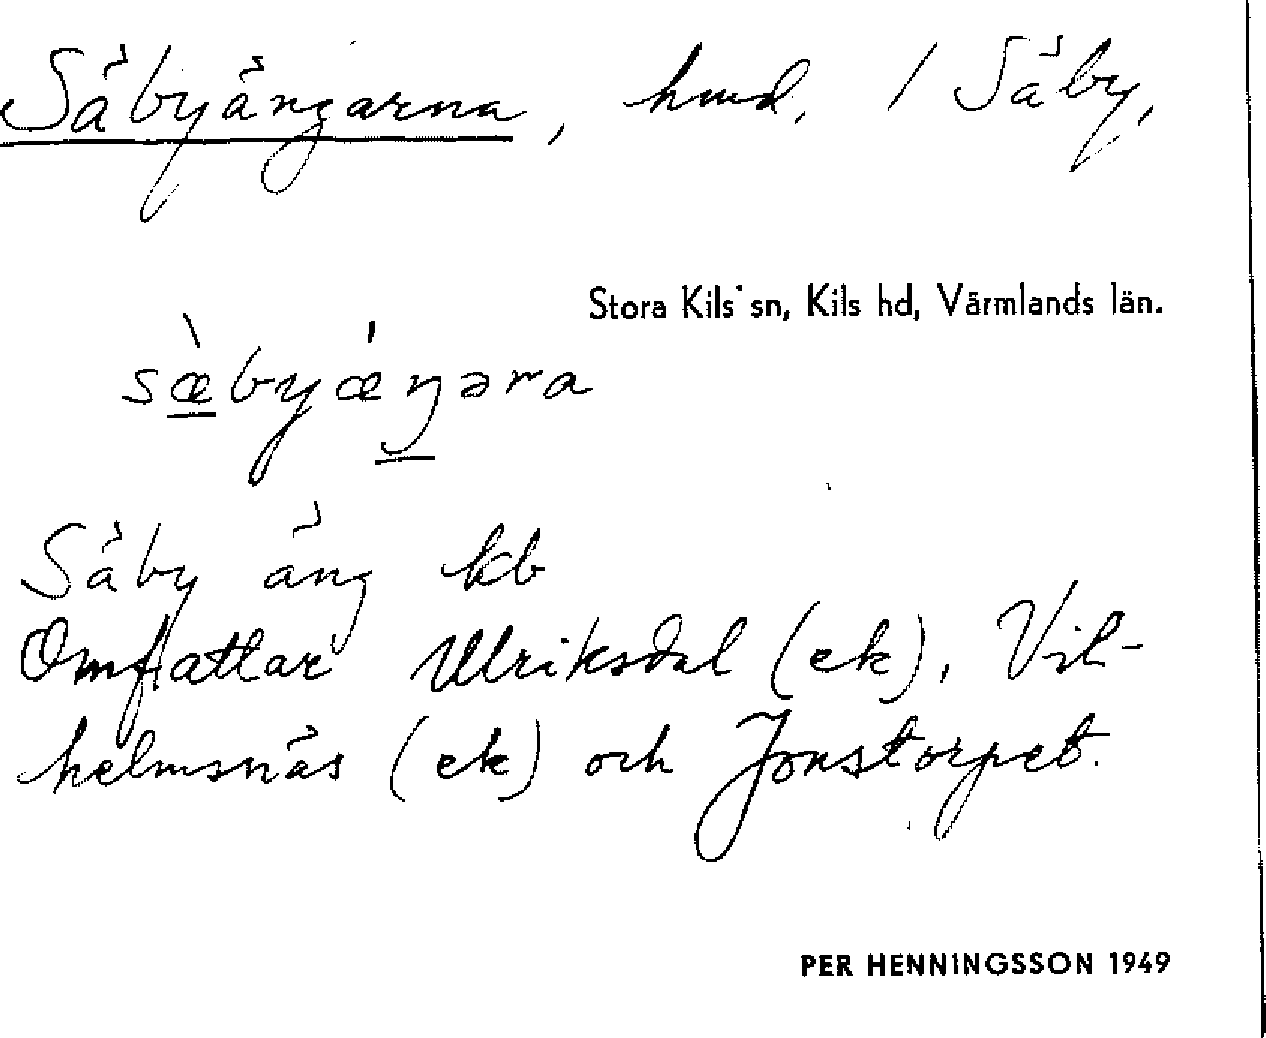 Säbyängarna, hmd, / Säby,
Stora Kils sn, Kils hd, Värmlands län.
sæ̀byǽŋəra
Säby äng kb
Omfattar Ulriksdal (ek), Vil-
helmsnäs (ek) och Jonstorpet.
PER HENNINGSSON 1949